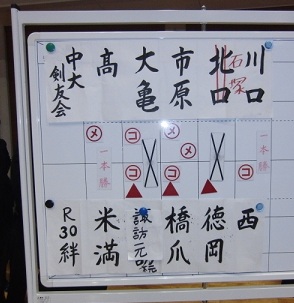 川口
北口
石塚
市原
大亀
髙
中大
剣友会
メ
コ
コ
コ
メ
一本勝
一本勝
西
徳岡
橋爪
諏訪元
米満
R30絆